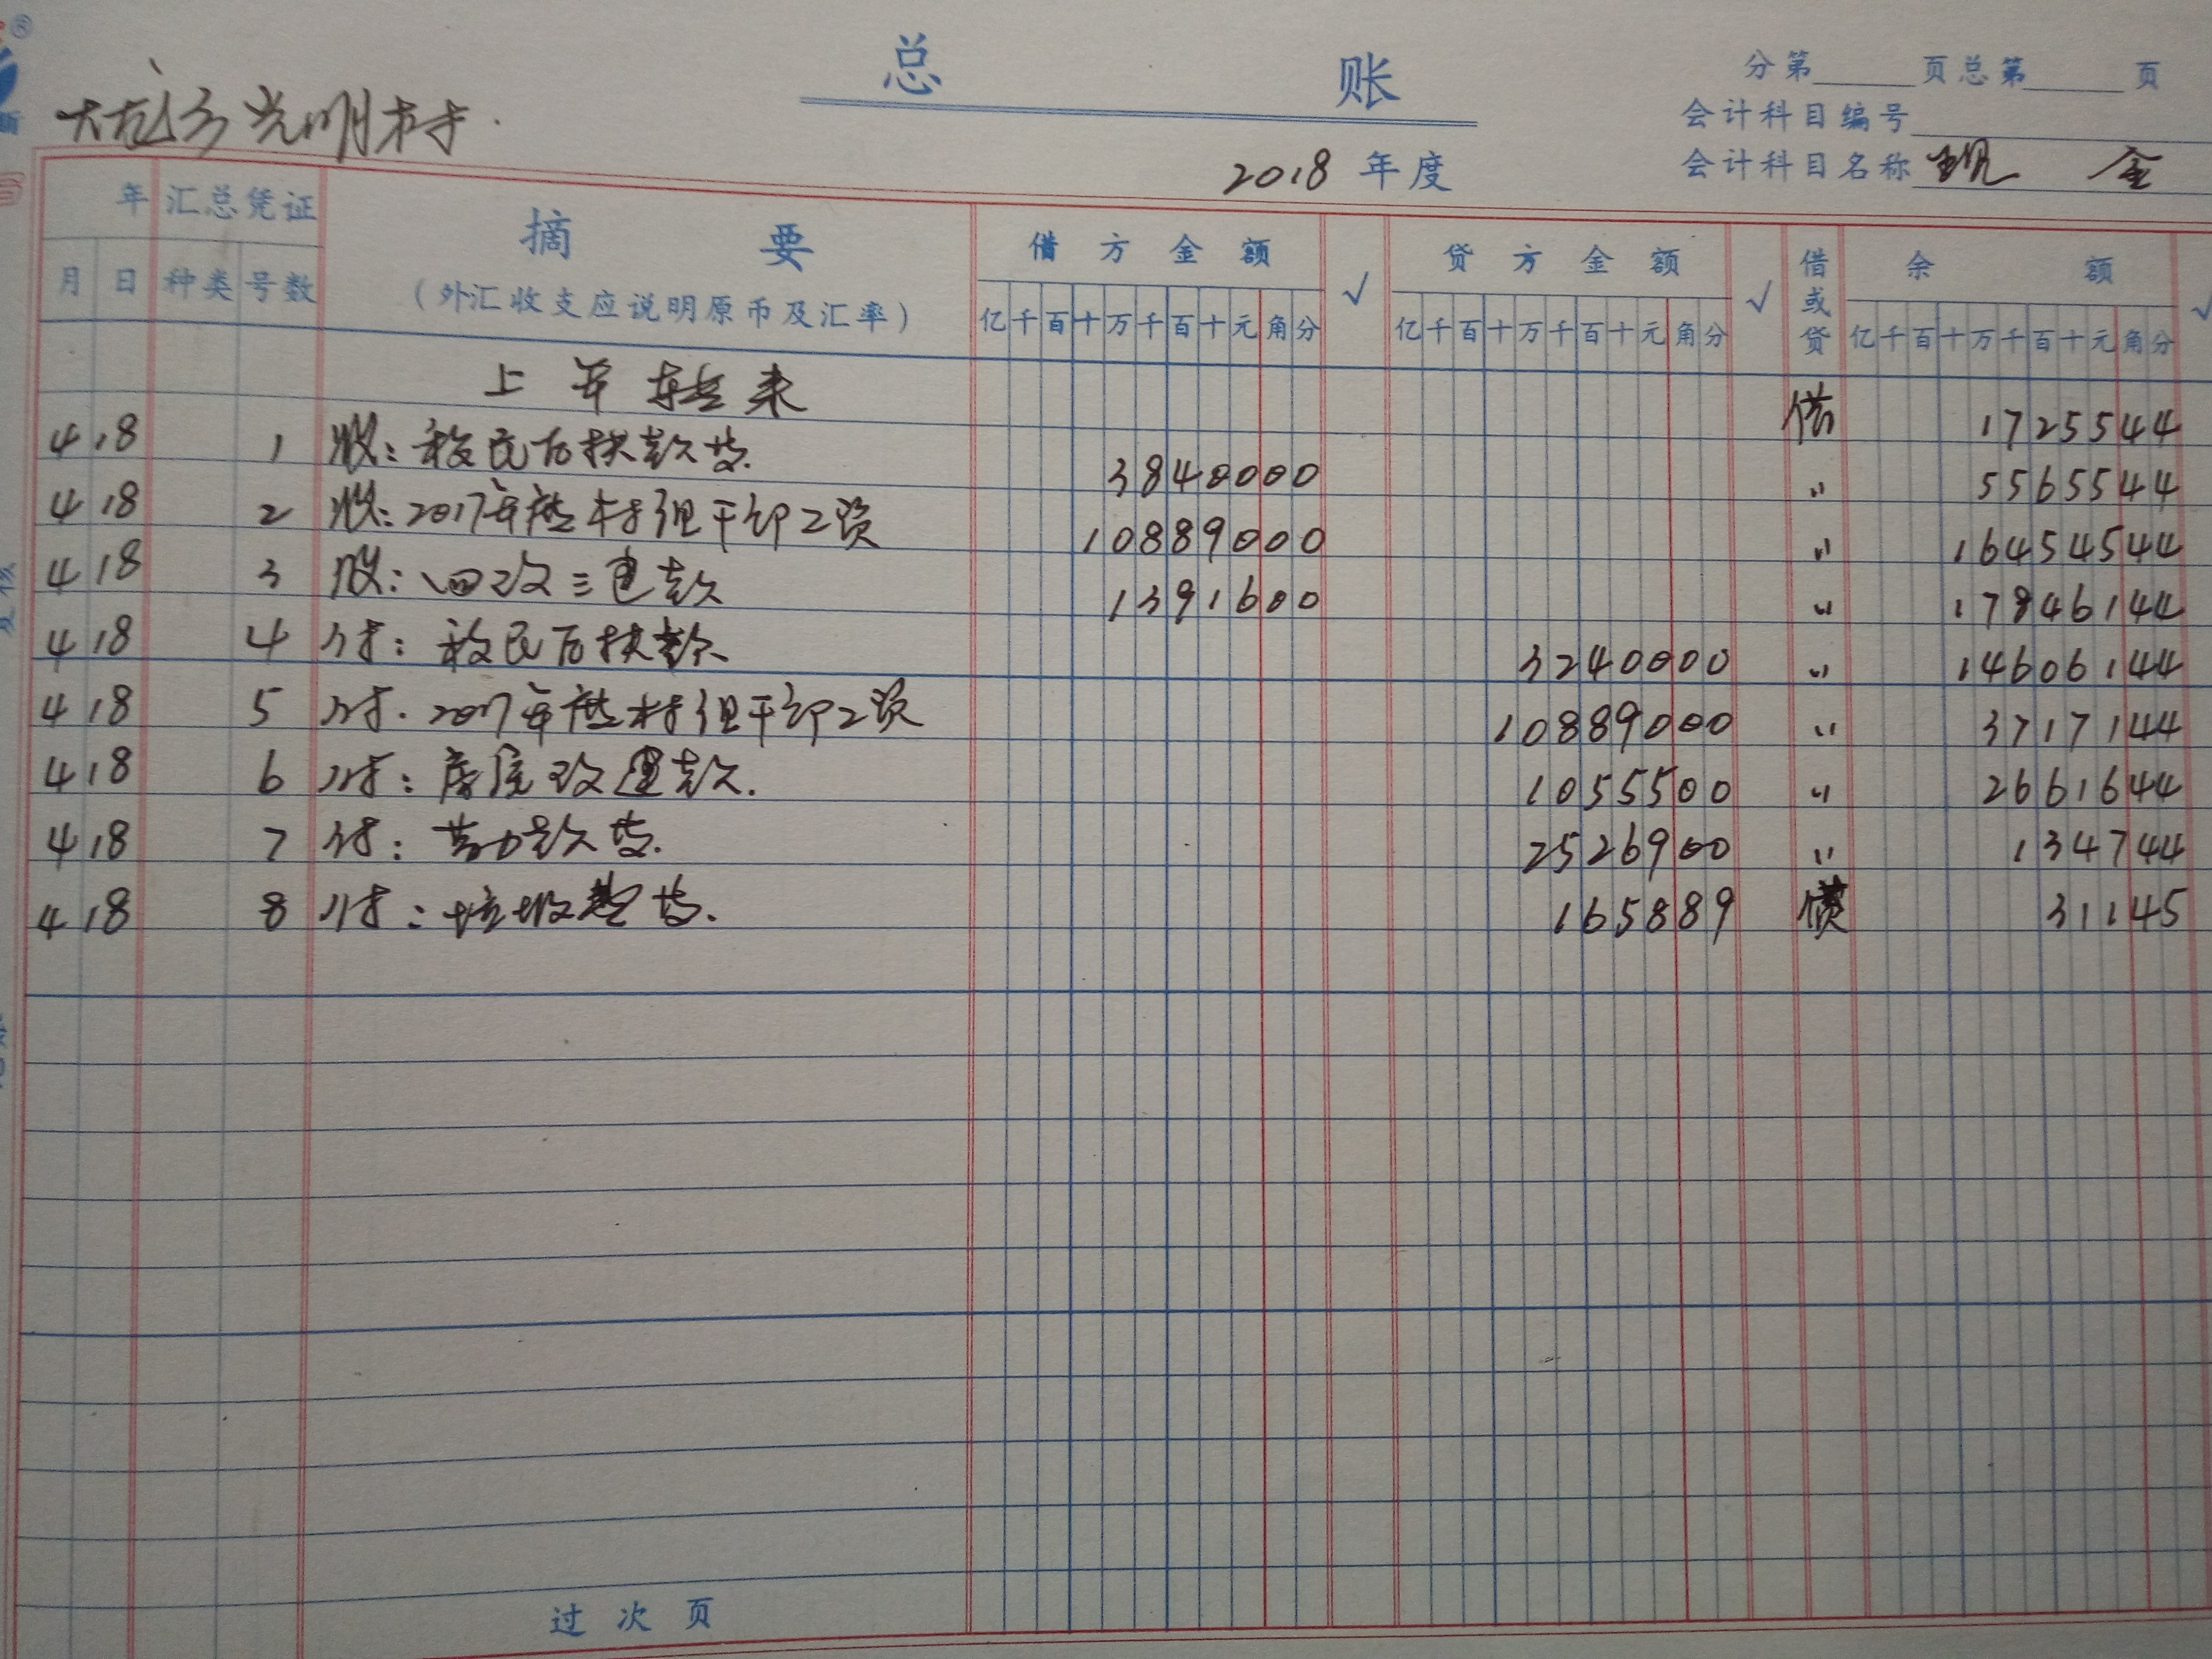 总 账
分第 页总第 页
会计科目编号
光明村
2018 年度
会计科目名称 现 金
年 汇总凭证 摘 要 借方金额 √ 贷方金额 √ 借或贷 余 额 √
月 日 种类 号数 (外汇收支应说明原币及汇率) 亿千百十万千百十元角分 亿千百十万千百十元角分 亿千百十万千百十元角分
上年转来 借 1725544
4 18 1 收:移民后扶款 3840000 〃 5565544
4 18 2 收:2017年 村组干部工资 10889000 〃 16454544
4 18 3 收:四改三建款 1391600 〃 17846144
4 18 4 付:移民后扶款 3240000 〃 14606144
4 18 5 付:2017年 村组干部工资 10889000 〃 3717144
4 18 6 付:房屋改建款. 1055500 〃 2661644
4 18 7 付:劳力款 2526900 〃 134744
4 18 8 付:垃圾 165889 31145
过次页